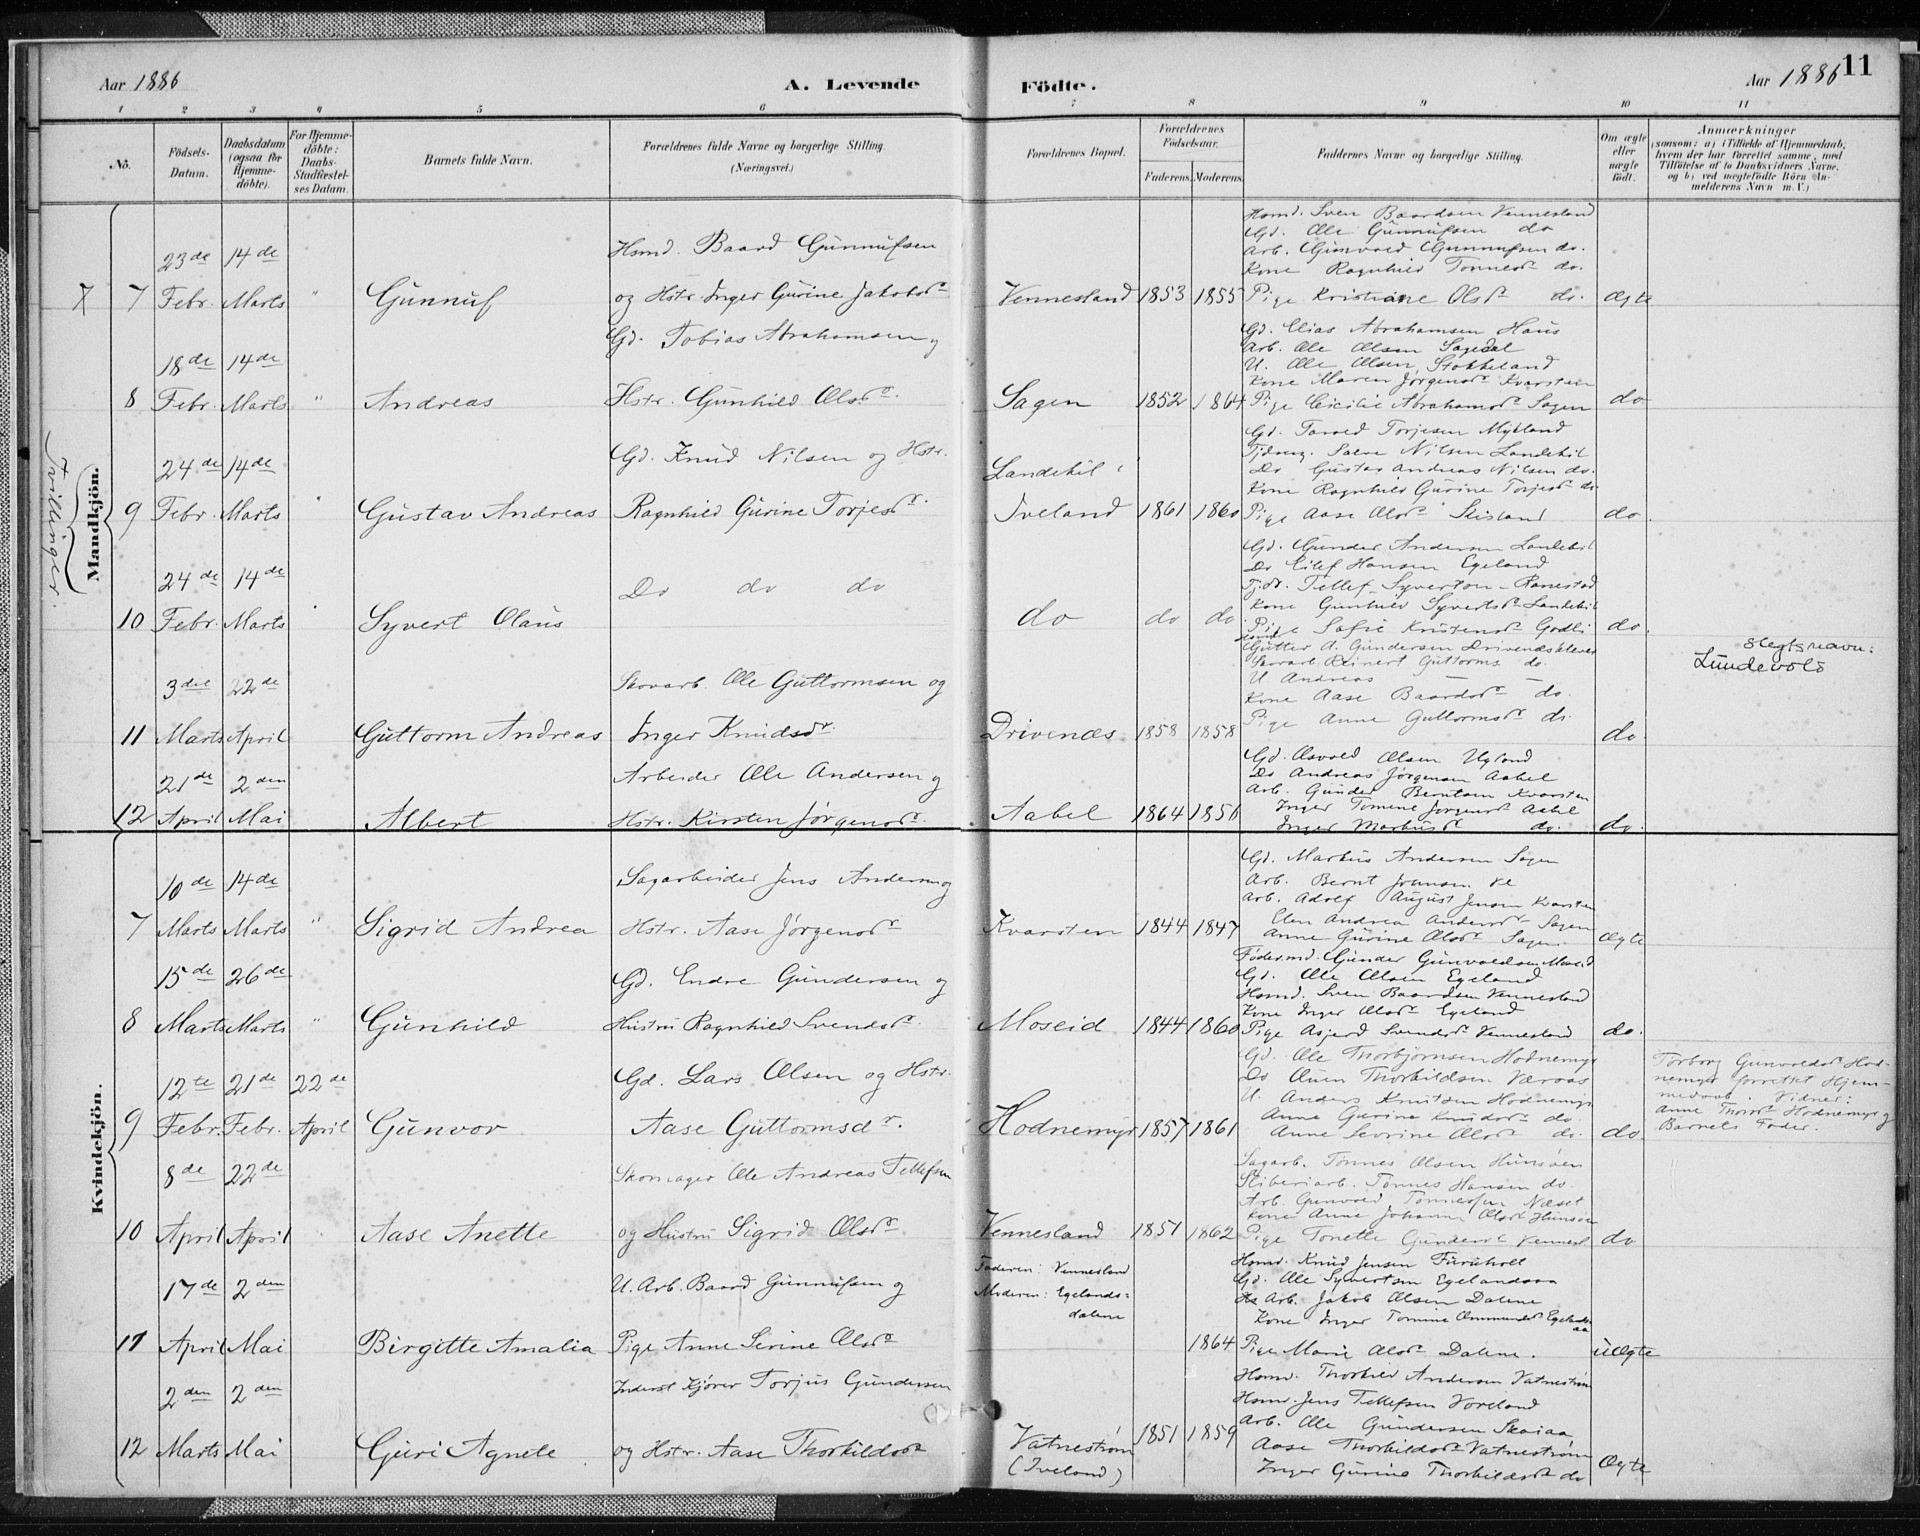 Aar 1886
A. Levende
Födte.
Aar 1886
11
1 2 3 4 5 6 7 8 9 10 11
No.
Födsels-
Datum.
Daabsdatum
(ogsaa för
Hjemme-
döbte).
For Hjemme-
döbte:
Daabs-
Stadfæstel-
ses Datum.
Barnets fulde Navn.
Forældrenes fulde Navne og borgerlige Stilling.
(Næringsvei.)
Forældrenes Bopæl.
Forældrenes
Födselsaar.
Faderens.
Moderens.
Faddernes Navne og borgerlige Stilling.
Om ægte
eller
uægte
födt.
Anmærkninger
(saasom: a) i Tilfælde af Hjemmedaab,
hvem der har forrettet samme, med
Tilföielse af to Daabsvidners Navne,
og b) ved uægtefödte Börn An-
melderens Navn m. V.)
Mandkjön.
Tvillinger.
7 23de Febr. 14de Marts " Gunnuf
Hsmd. Baard Gunnufsen
og Hstr. Inger Gurine Jakobsdr
Vennesland 1853 1855
Hsmd. Sven Baardsen Vennesland
Gd. Ole Gunnufsen do
Arb. Gunvald Gunnufsen do.
Kone Ragnhild Tonnesdr do.
Pige Kristiane Olsdr do.
Ægte
8 18de Febr. 14de Marts " Andreas
Gd. Tobias Abrahamsen og
Hstr. Gunhild Olsdr.
Sagen 1852 1864
Gd. Elias Abrahamsen Haus
Arb. Ole Olsen Sagedal
U. Ole Olsen, Stokkeland
Kone Maren Jørgensdr Kvarstein
Pige Cicilie Abrahamsdr Sagen
do
9 24de Febr. 14de Marts " Gustav Andreas
Gd. Knud Nilsen og Hstr.
Ragnhild Gurine Torjesdr.
Landehil i
Iveland 1861 1860
Gd. Tarald Torjesen Mykland
Salve Nilsen Landehil
Do Gustav Andreas Nilsen do.
Kone Ragnhild Gurine Torjesdr do
Pige Aase Olsdr Skisland
do.
10 24de Febr. 14de Marts Syvert Olaus
Do do do
do do do
Gd. Gunder Andersen Landehil
Do Eilef Hansen Egeland
Tellef Syvertsen
Kone Gunhild Syvertsdr Landehil
Pige Sofie Kristensdr Godli
do.
11 3die Marts 22de April Guttorm Andreas
Skovarb. Ole Guttormsen og
Inger Knudsdr.
Drivenæs 1858 1858
Gundersen Drivenæs
Skovarb. Reinert Guttorms do.
U Andreas —
Kone Aase Baardsdr do.
Pige Anne Guttormsdr do.
do.
Slegtsnavn:
Lundevold
12 21de April 2den Mai Albert
Arbeider Ole Andersen og
Hstr. Kirsten Jørgensdr.
Aabel 1864 1856
Gd. Osvald Olsen Ugland
Do Andreas Jørgensen Aabel
Arb. Gunder Berntsen Kvarsten
Inger Tomine Jørgensdr Aabel
Inger Markusdr do.
do.
Kvindekjön.
7 10de Marts 14de Marts " Sigrid Andrea
Sagarbeider Jens Andersen og
Hstr. Aase Jørgensdr
Kvarsten 1844 1847
Gd. Markus Andersen Sagen
Arb. Bernt Jensen
Arb. Adolf August Jensen Kvarsten
Elen Andrea Andersdr Sagen
Anne Gurine Olsdr Sagen.
Ægte
8 15de Marts 26de Marts " Gunhild
Gd. Endre Gundersen og
Hustru Ragnhild Svendsdr.
Moseid 1844 1860
Føderaadmd. Gunder Gunvaldsen Moseid
Gd. Ole Olsen Egeland
Hsmd. Sven Baardsen Vennesland
Kone Inger Olsdr Egeland
Pige Asjerd Svendsdr Vennesland
do.
9 12te Febr. 21de Febr. 22de April Gunvor
Gd. Lars Olsen og Hstr.
Aase Guttormsdr.
Hodnemyr 1857 1861
Gd. Ole Thorbjørnsen Hodnemyr
Do Ouen Thorkildsen Væraas
U. Anders Knutsen Hodnemyr
Anne Gurine Knudsdr do.
Anne Sevrine Olsdr do.
do.
Torborg Gunvaldsdr Hod-
nemyr forrettet Hjem-
medaab. Vidner:
Anne Thorsdr Hodnemyr og
Barnets Fader.
10 8de April 22de April Aase Anette
Skomager Ole Andreas Tellefsen
og Hustru Sigrid Olsdr
Vennesland 1851 1862
Sagarb. Tønnes Olsen Hunsøen
Sliberiarb. Tønnes Hansen do.
Arb. Gunvald Tønnessen Næset
Kone Anne Johanne Olsdr Hunsøen
Pige Tonette Gundersdr Vennesl.
do
11 17de April 2den Mai Birgitte Amalia
U. Arb. Baard Gunnufsen og
Pige Anne Serine Olsdr
Faderen: Vennesland
Moderen: Egelands-
dalene
1864
Hsmd. Knud Jensen Furuholt
Gd. Ole Syvertsen Egelandsaa
Arb. Jakob Olsen Dalene
Kone Inger Tomine Ommundsdr Egelands-
aa
Pige Marie Olsdr Dalene.
Uægte
12 2den Marts 2den Mai Guri Agnete
Inderst Kjører Torjus Gundersen
og Hstr. Aase Thorkildsdr
Vatnestrøm
(Iveland) 1851 1859
Hsmd. Thorkild Andersen Vatnestrøm
Hsmd. Jens Tellefsen Voreland
Arb. Ole Gundersen Skaiaa
Aase Thorkildsdr Vatnestrøm
Inger Gurine Thorkildsdr do
Ægte